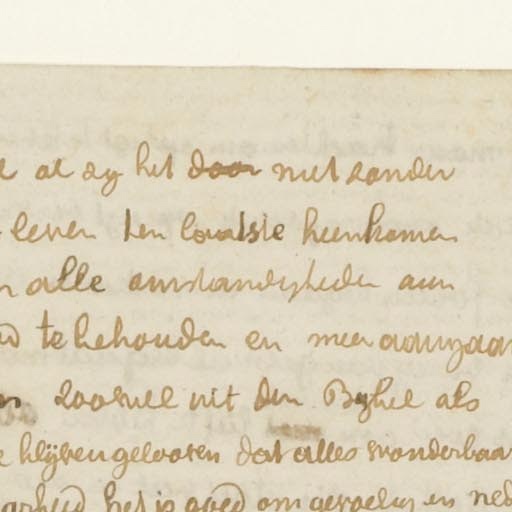 al zy het door niet zonder
leven ten laatste heenkomen
alle omstandigheden aan
te behouden en meer aangaan
zoowel uit den Bybel als
blijven gelooven dat alles wonderbaar
het is goed om gevoelig en ned